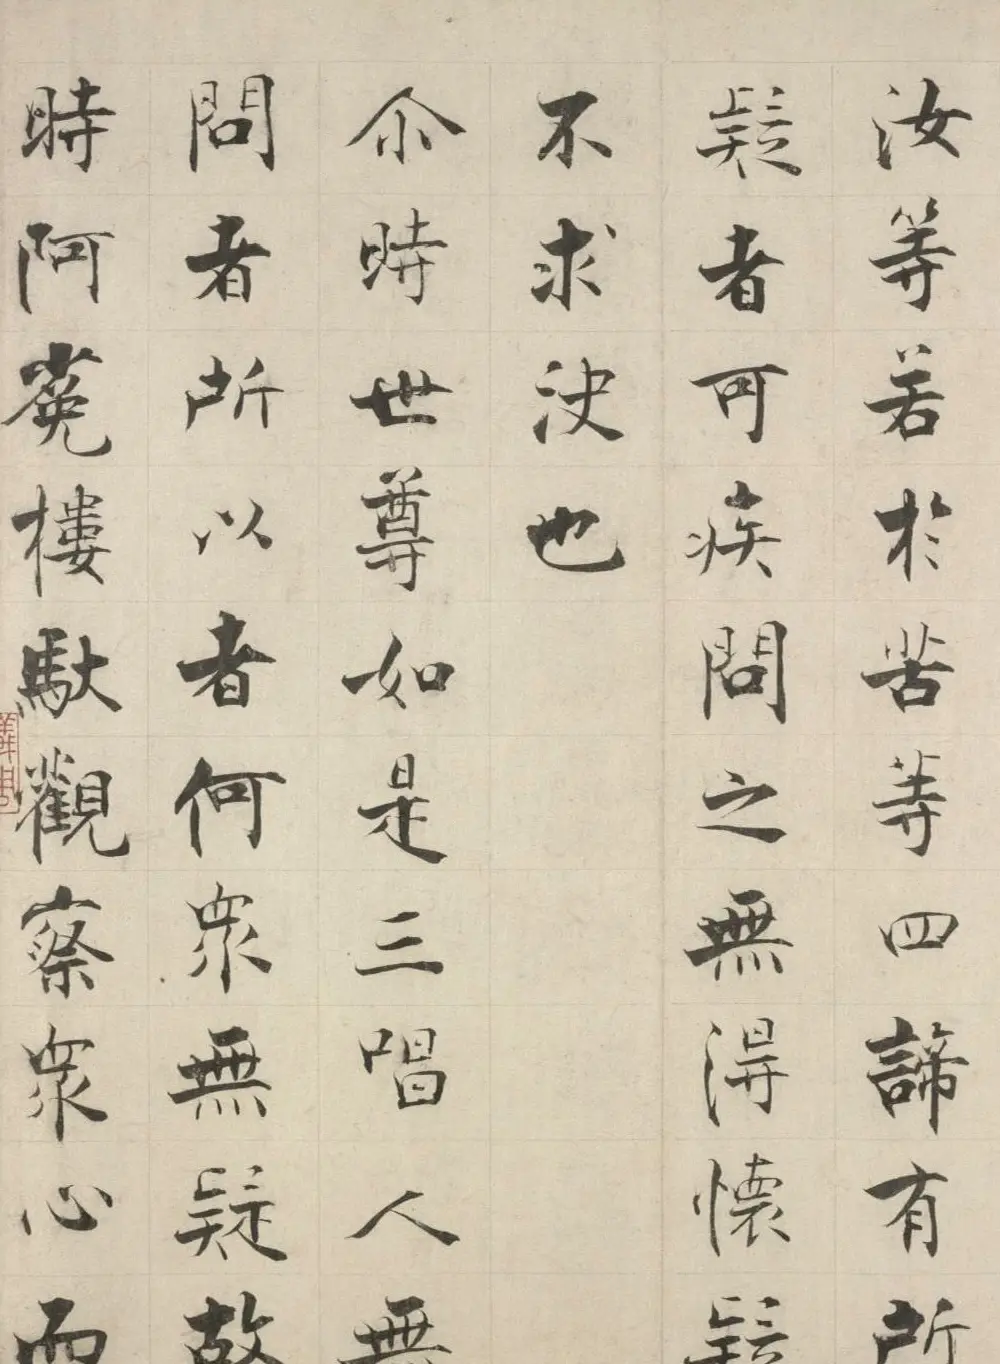 汝等若於苦等四諦有所
疑者可疾問之無得懷疑
不求決也
尒時世尊如是三唱人無
問者所以者何衆無疑故
時阿㝹樓馱觀察衆心而